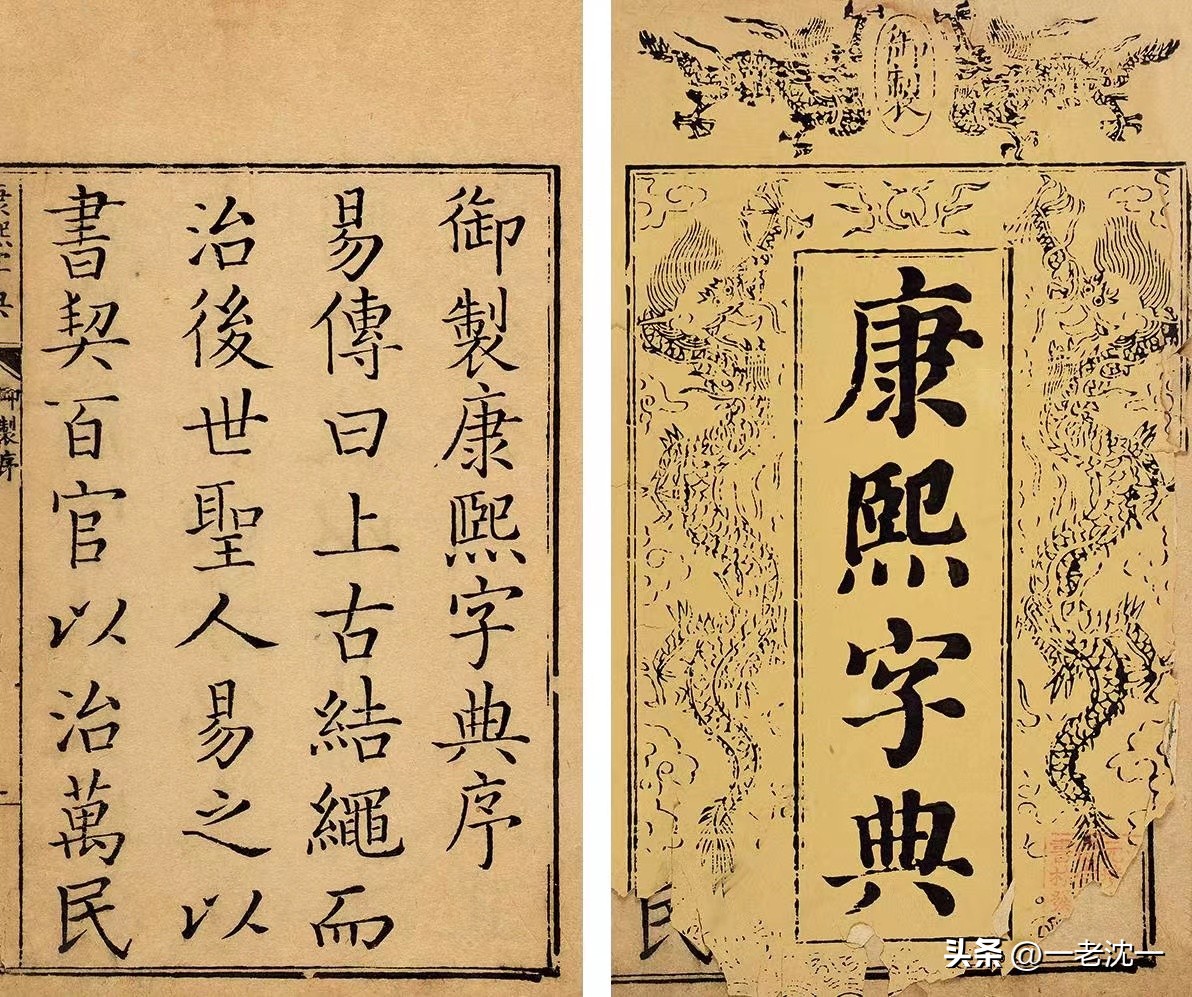 御製
康熙字典
御製康熙字典序
易傳曰上古結繩而
治後世聖人易之以
書契百官以治萬民
康熙字典
御製序
民
头条 @一老沈一